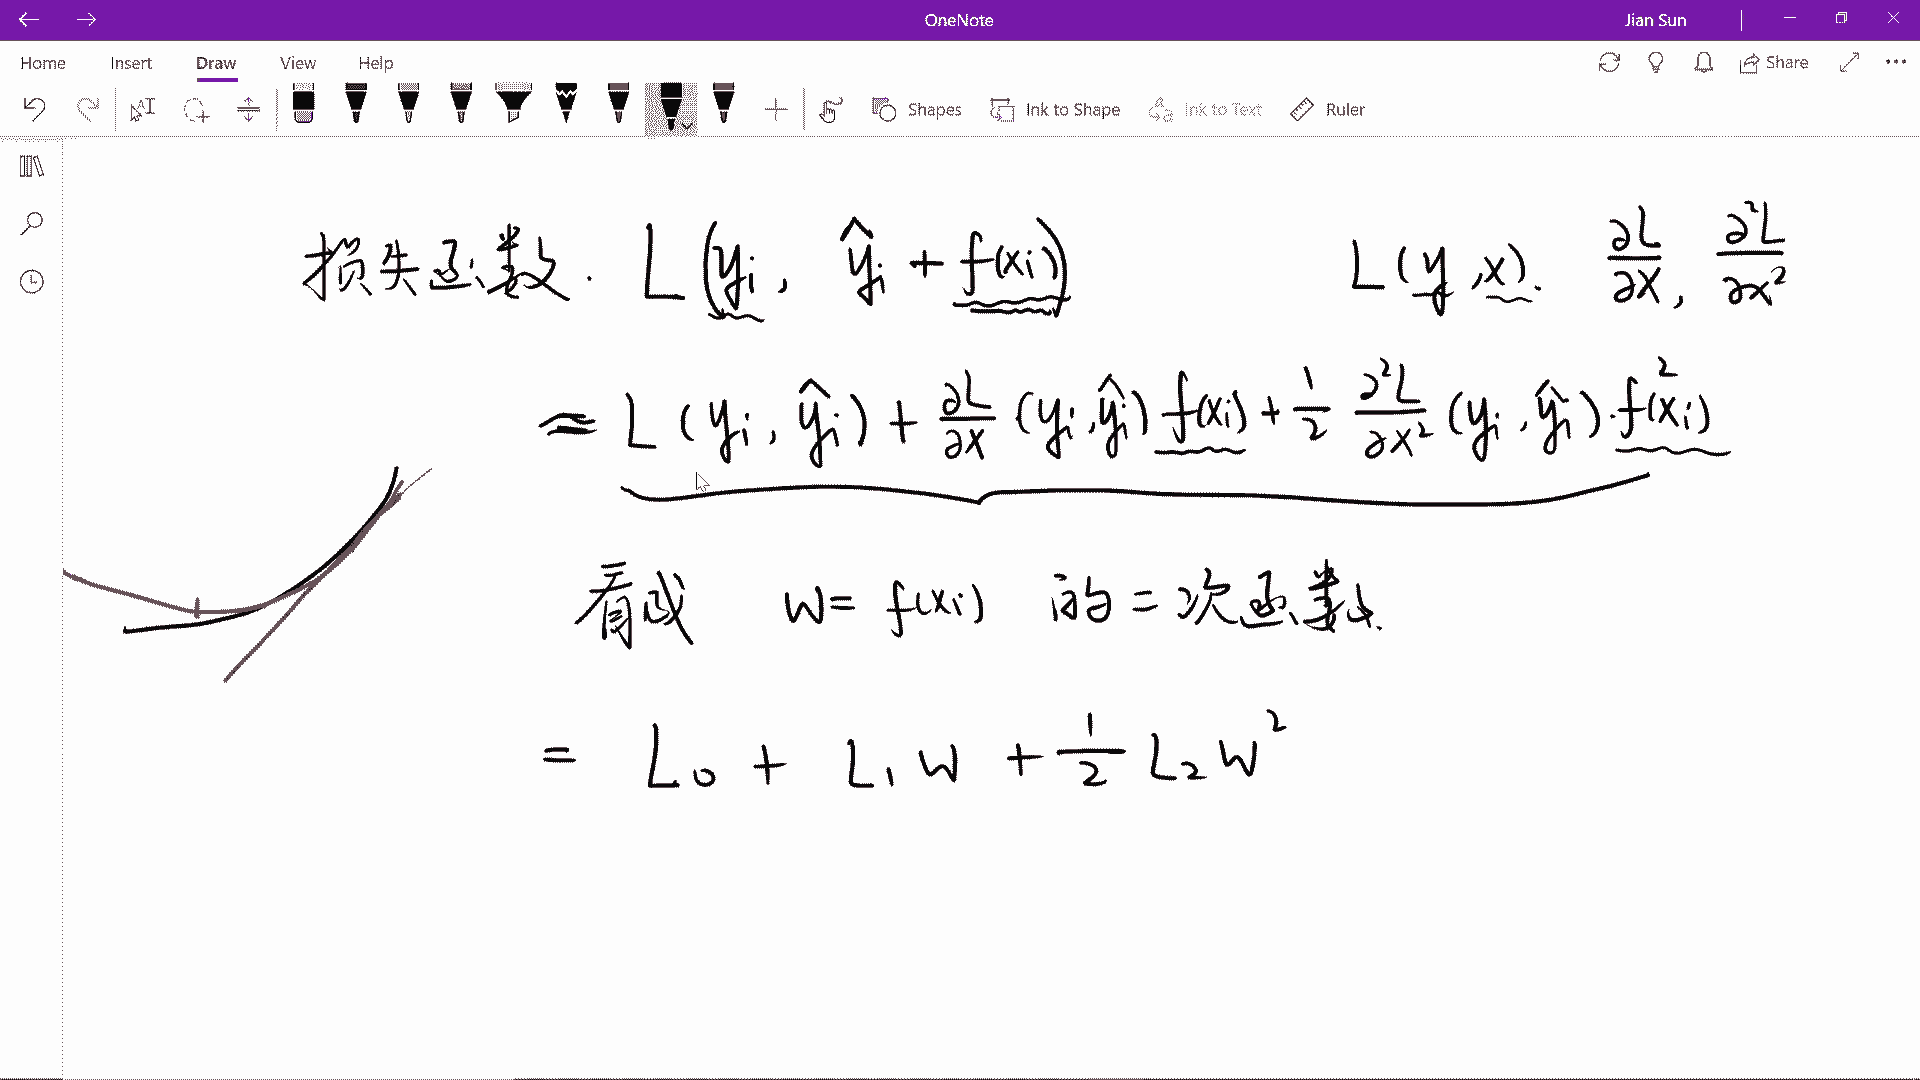 OneNote
Jian Sun
Home Insert Draw View Help
Share
Shapes Ink to Shape Ink to Text Ruler
损失函数. L(yi, ŷi + f(xi)) L(y, x). ∂L/∂x, ∂²L/∂x²
≈ L(yi, ŷi) + ∂L/∂x (yi, ŷi) f(xi) + 1/2 ∂²L/∂x² (yi, ŷi)·f²(xi)
看成 w = f(xi) 的二次函数.
= L₀ + L₁w + 1/2 L₂w²